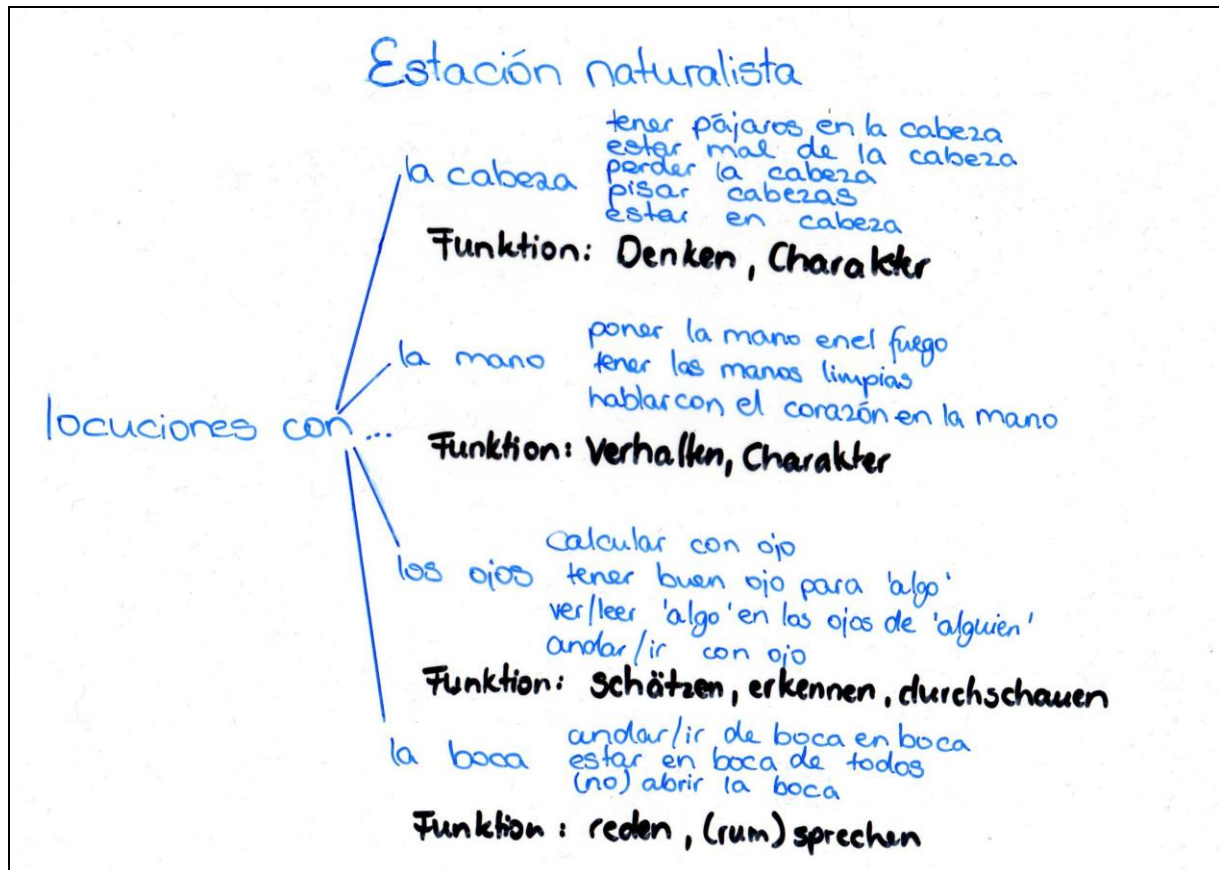 Estación naturalista
tener pájaros en la cabeza
estar mal de la cabeza
la cabeza perder la cabeza
pisar cabezas
estar en cabeza
Funktion: Denken, Charakter
poner la mano enel fuego
la mano tener las manos limpias
hablar con el corazón en la mano
locuciones con...
Funktion: Verhalten, Charakter
calcular con ojo
los ojos tener buen ojo para 'algo'
ver/leer 'algo' en los ojos de 'alguien'
andar/ir con ojo
Funktion: schätzen, erkennen, durchschauen
andar/ir de boca en boca
la boca estar en boca de todos
(no) abrir la boca
Funktion: reden, (rum) sprechen